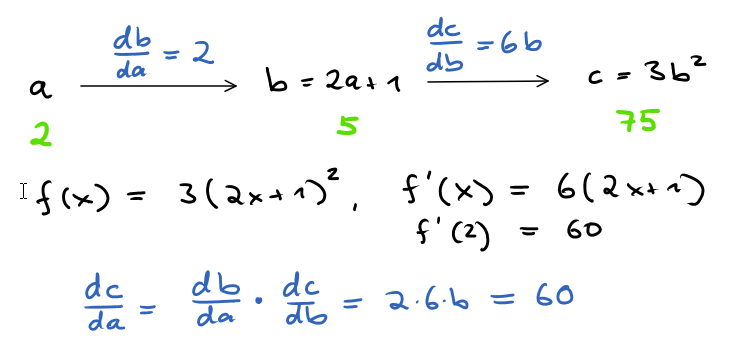 db/da = 2
dc/db = 6b
a
b = 2a+1
c = 3b²
2
5
75
f(x) = 3(2x+1)², f'(x) = 6(2x+1)
f'(2) = 60
dc/da = db/da · dc/db = 2·6·b = 60